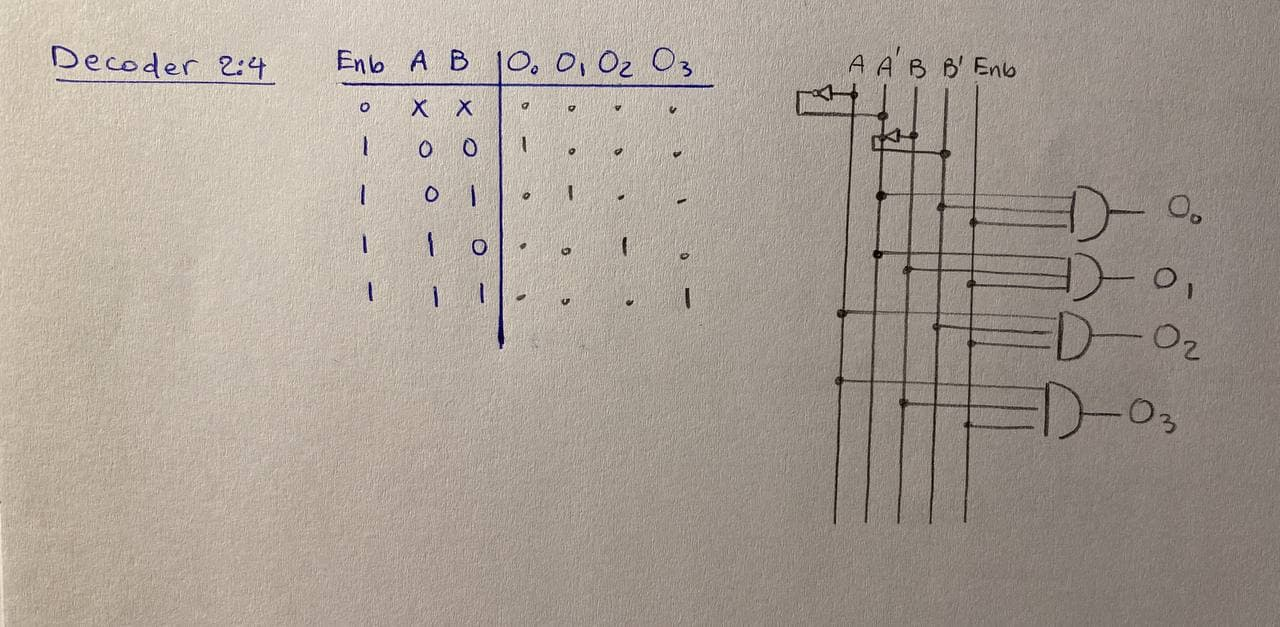 Decoder 2:4
Enb A B O₀ O₁ O₂ O₃
0 X X 0 0 0 0
1 0 0 1 0 0 0
1 0 1 0 1 0 0
1 1 0 0 0 1 0
1 1 1 0 0 0 1
A A' B B' Enb
O₀
O₁
O₂
O₃